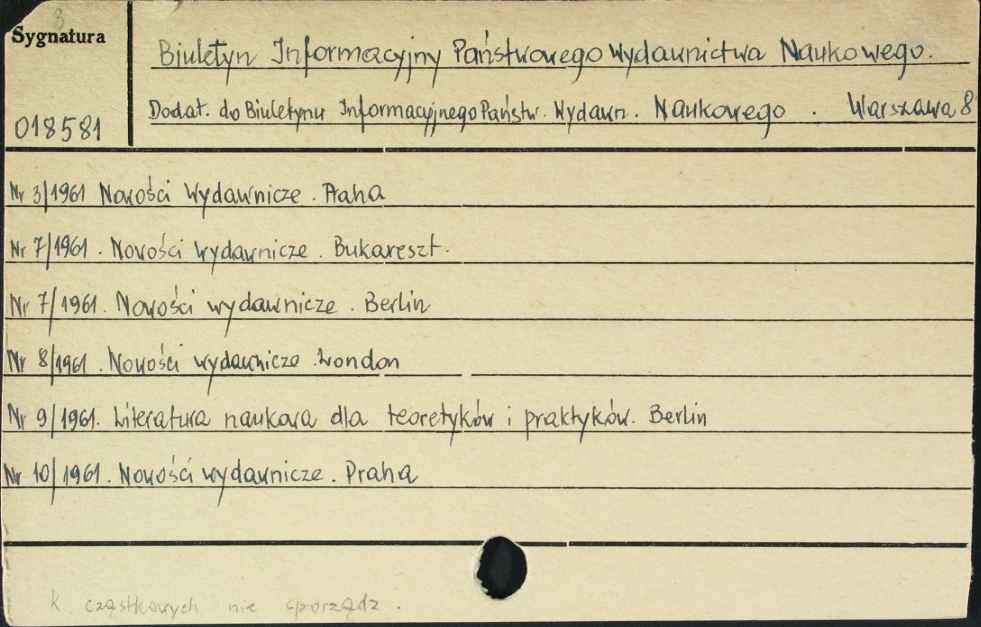 8
Sygnatura
018581
Biuletyn Informacyjny Państwowego Wydawnictwa Naukowego.
Dodat. do Biuletynu Informacyjnego Państw. Wydawn. Naukowego. Warszawa 8
Nr 3/1961 Nowości Wydawnicze. Praha
Nr 7/1961. Nowości wydawnicze. Bukareszt.
Nr 7/1961. Nowości wydawnicze. Berlin
Nr 8/1961. Nowości wydawnicze. London
Nr 9/1961. Literatura naukowa dla teoretyków i praktyków. Berlin
Nr 10/1961. Nowości wydawnicze. Praha
K. cząstkowych nie sporządz.